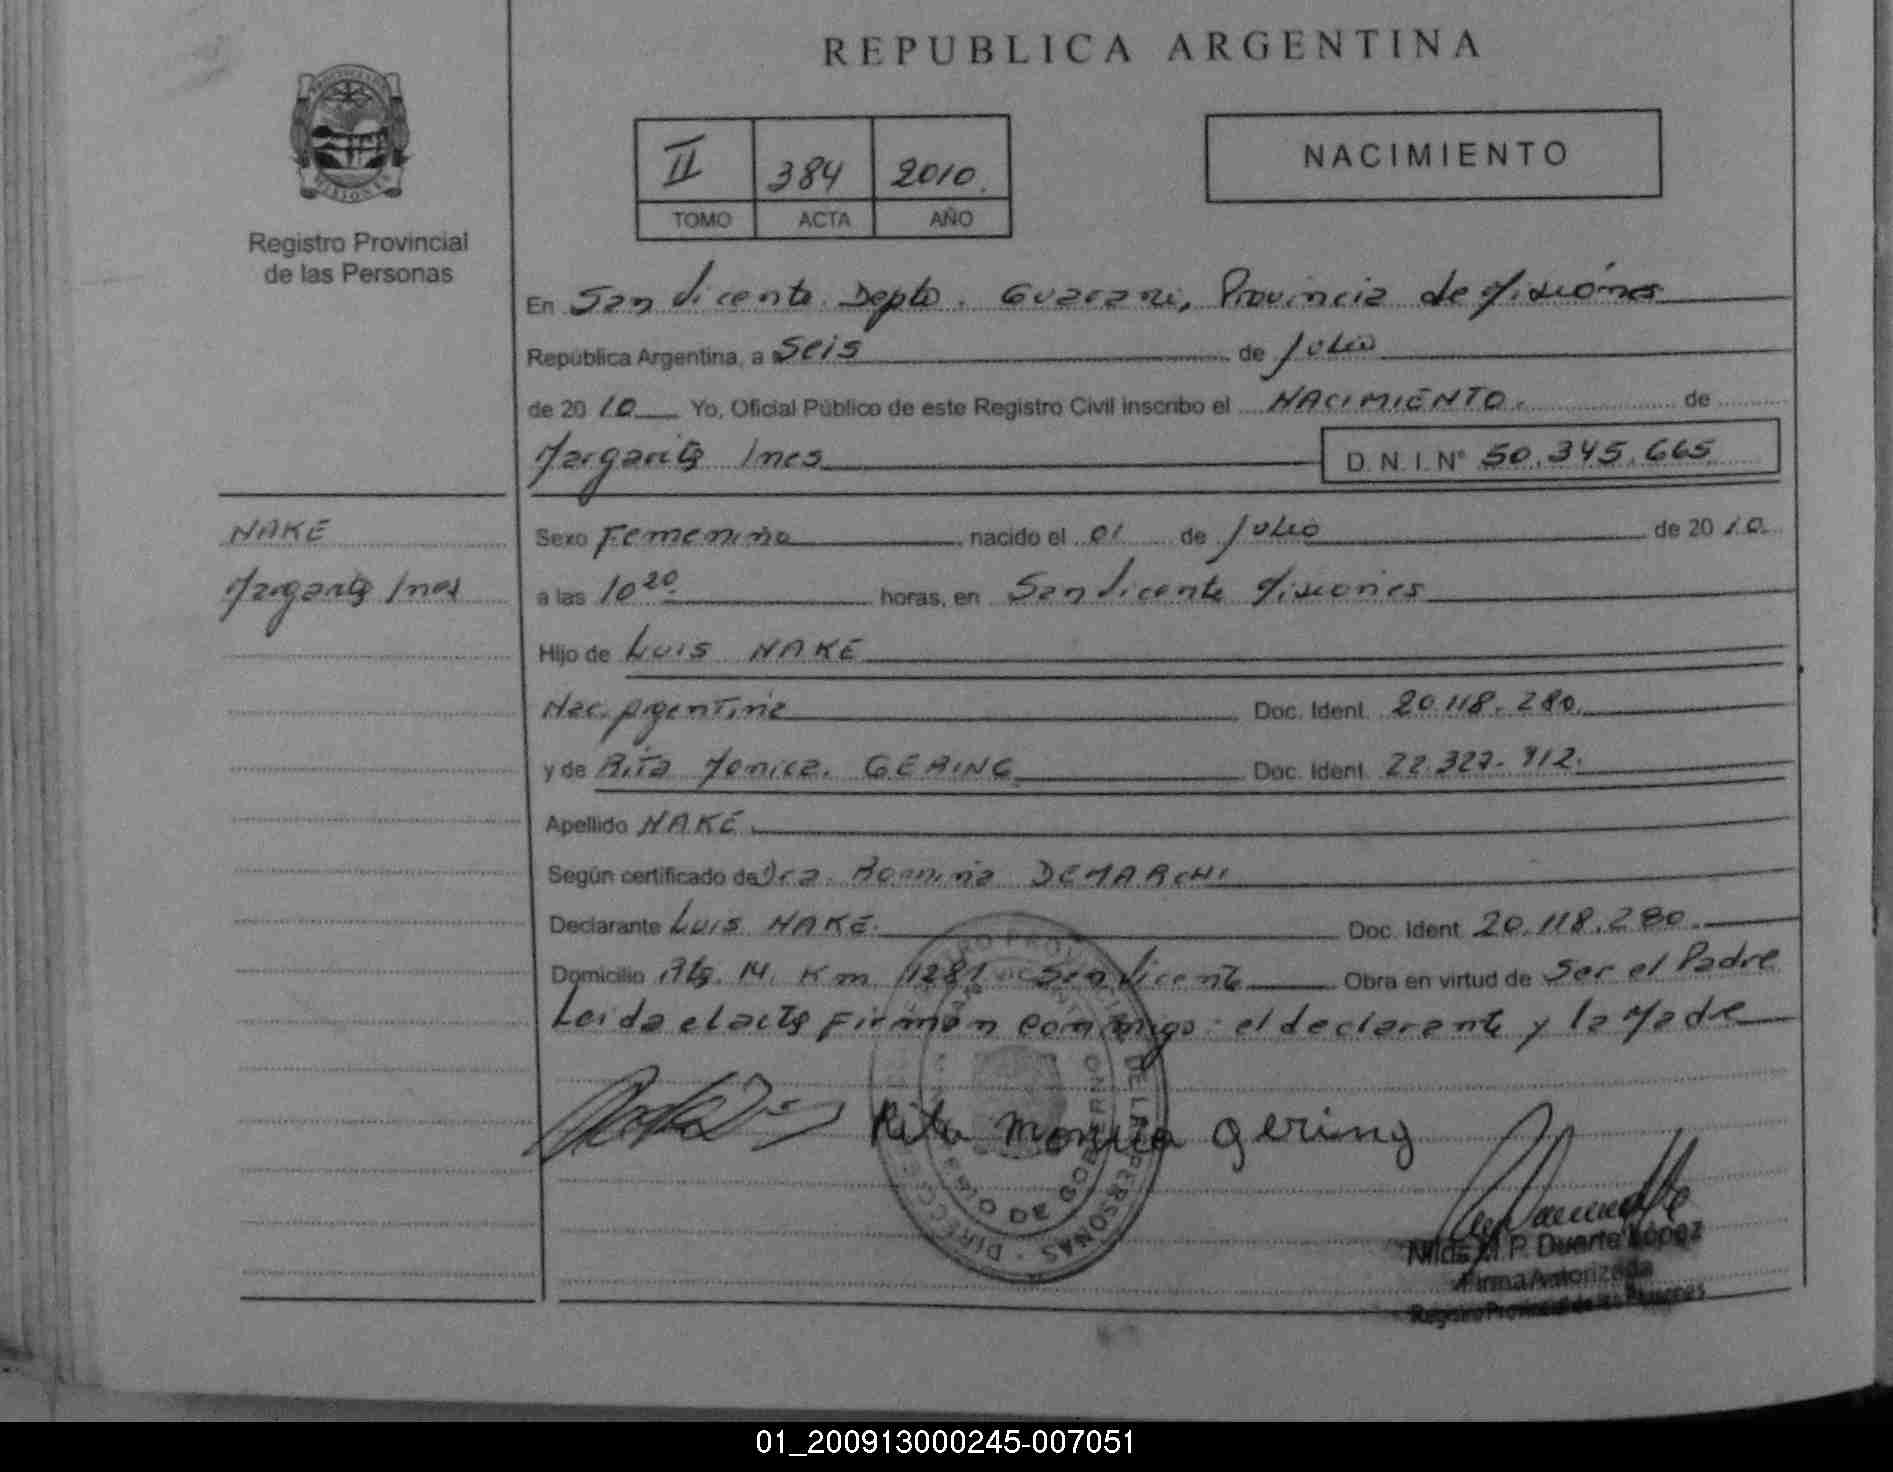 REPUBLICA ARGENTINA
PROVINCIA DE MISIONES
Registro Provincial
de las Personas
II 384 2010.
TOMO ACTA AÑO
NACIMIENTO
En San Vicente Depto. Guarani, Provincia de Misiones
República Argentina, a Seis de Julio
de 2010 Yo, Oficial Público de este Registro Civil inscribo el NACIMIENTO. de
Margarita Ines D. N. I. Nº 50.345.665
NAKE
Margarita Ines
Sexo Femenino nacido el 01 de Julio de 2010.
a las 10 20 horas, en San Vicente Misiones
Hijo de Luis NAKE
Nac. Argentina Doc. Ident. 20.118.280.
y de Rita Monica. GERING Doc. Ident. 22.327.912.
Apellido NAKE
Según certificado de Dra. Romina DEMARCHI
Declarante Luis NAKE. Doc. Ident. 20.118.280.
Domicilio Rta. 14. Km 1281. San Vicente Obra en virtud de Ser el Padre
Leida el acta Firman conmigo: el declarante y la Madre
Rita Monica Gering
DE LAS PERSONAS
Nilda M.P. Duarte López
Firma Autorizada
Registro Provincial de las Personas
01_200913000245-007051